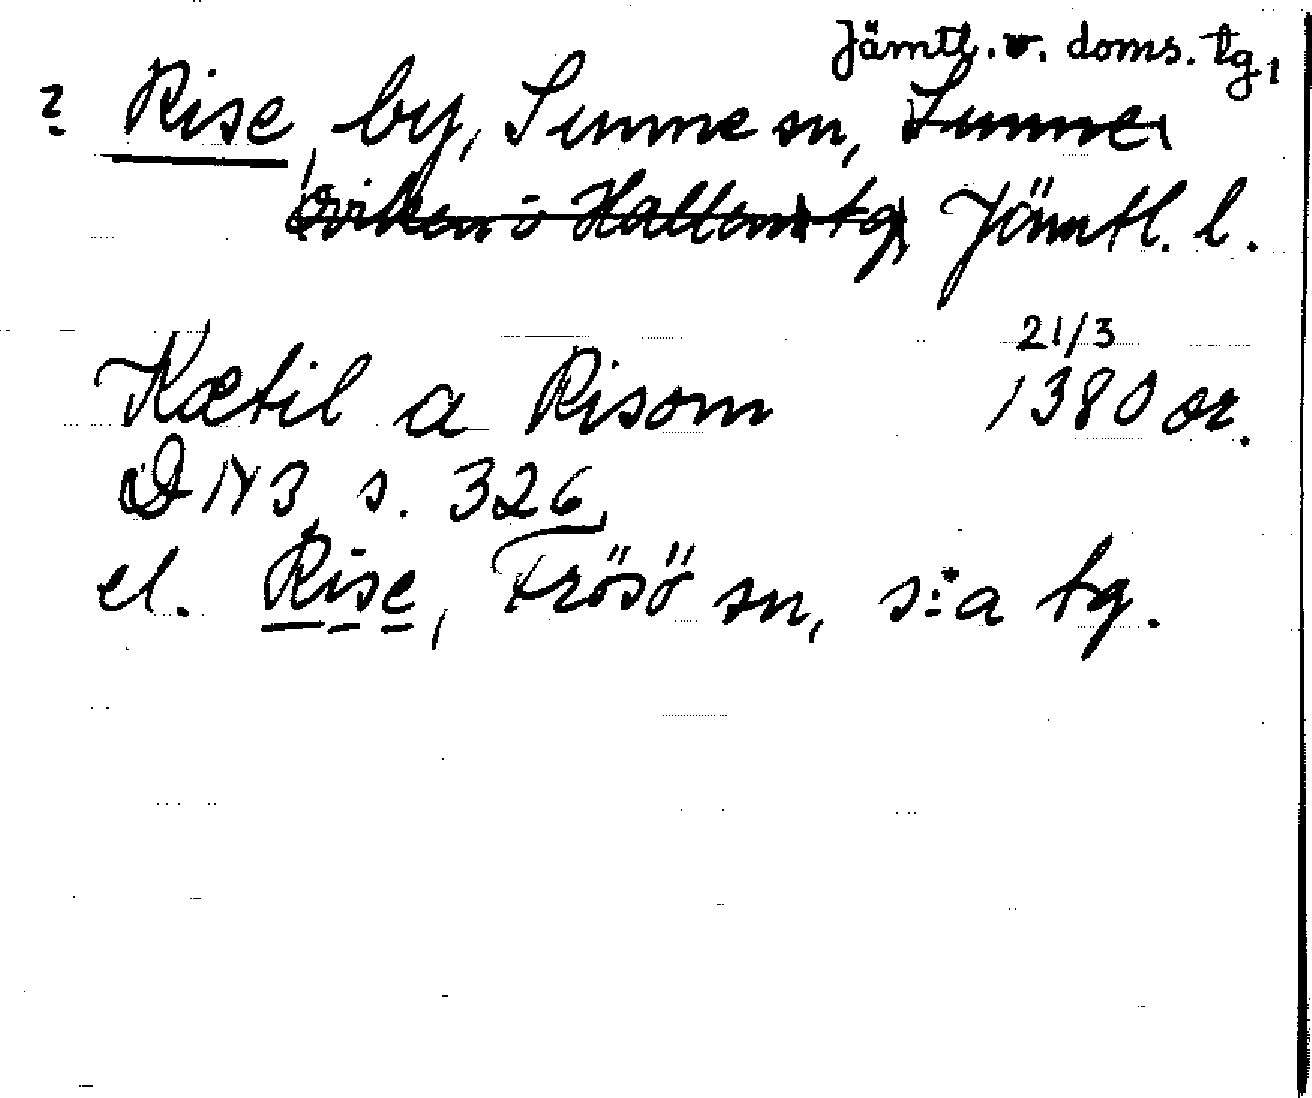 Jämtl. v. doms. tg,
? Rise, by, Sunne sn, Sunne,
Oviken o Hallens tg, Jämtl. l.
21/3
Kætil a Risom 1380 or.
DN 3 s. 326
el. Rise, Frösö sn, s:a tg.